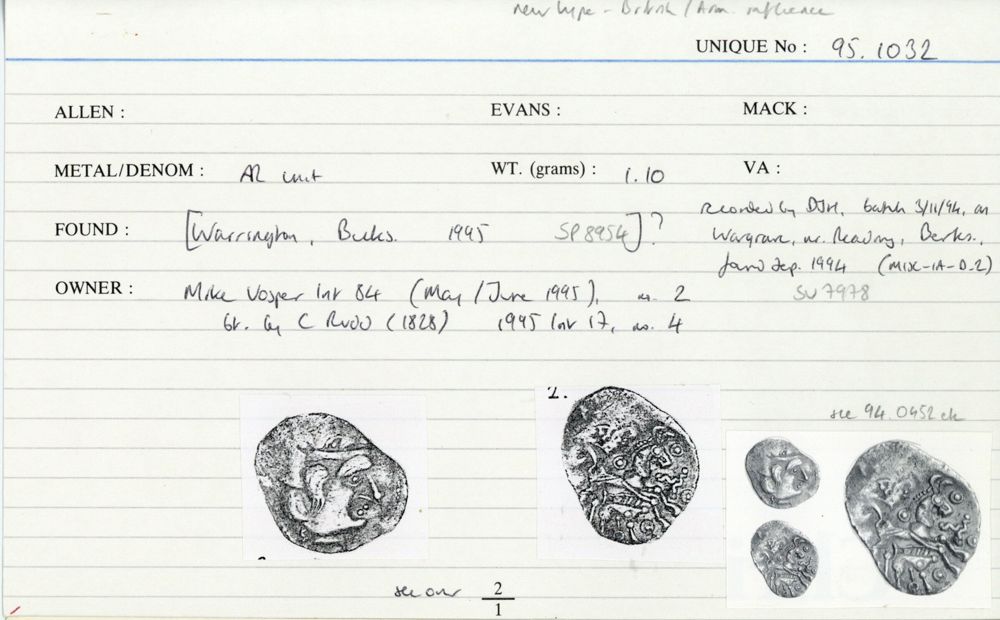 new type - British / Arm. influence
UNIQUE No : 95.1032
ALLEN : EVANS : MACK :
METAL/DENOM : AR unit WT. (grams) : 1.10 VA :
FOUND : [Warrington, Bucks. 1995 SP 8954]?
recorded by DJH, batch 3/11/94, as
Wargrave, nr. Reading, Berks.,
found Sep. 1994 (MIX-IA-D-2)
SU 7978
OWNER : Mike Vosper list 84 (May/June 1995), no. 2
bt. by C Rudd (1828) 1995 list 17, no. 4
2.
see 94.0452 ck
see over 2
1